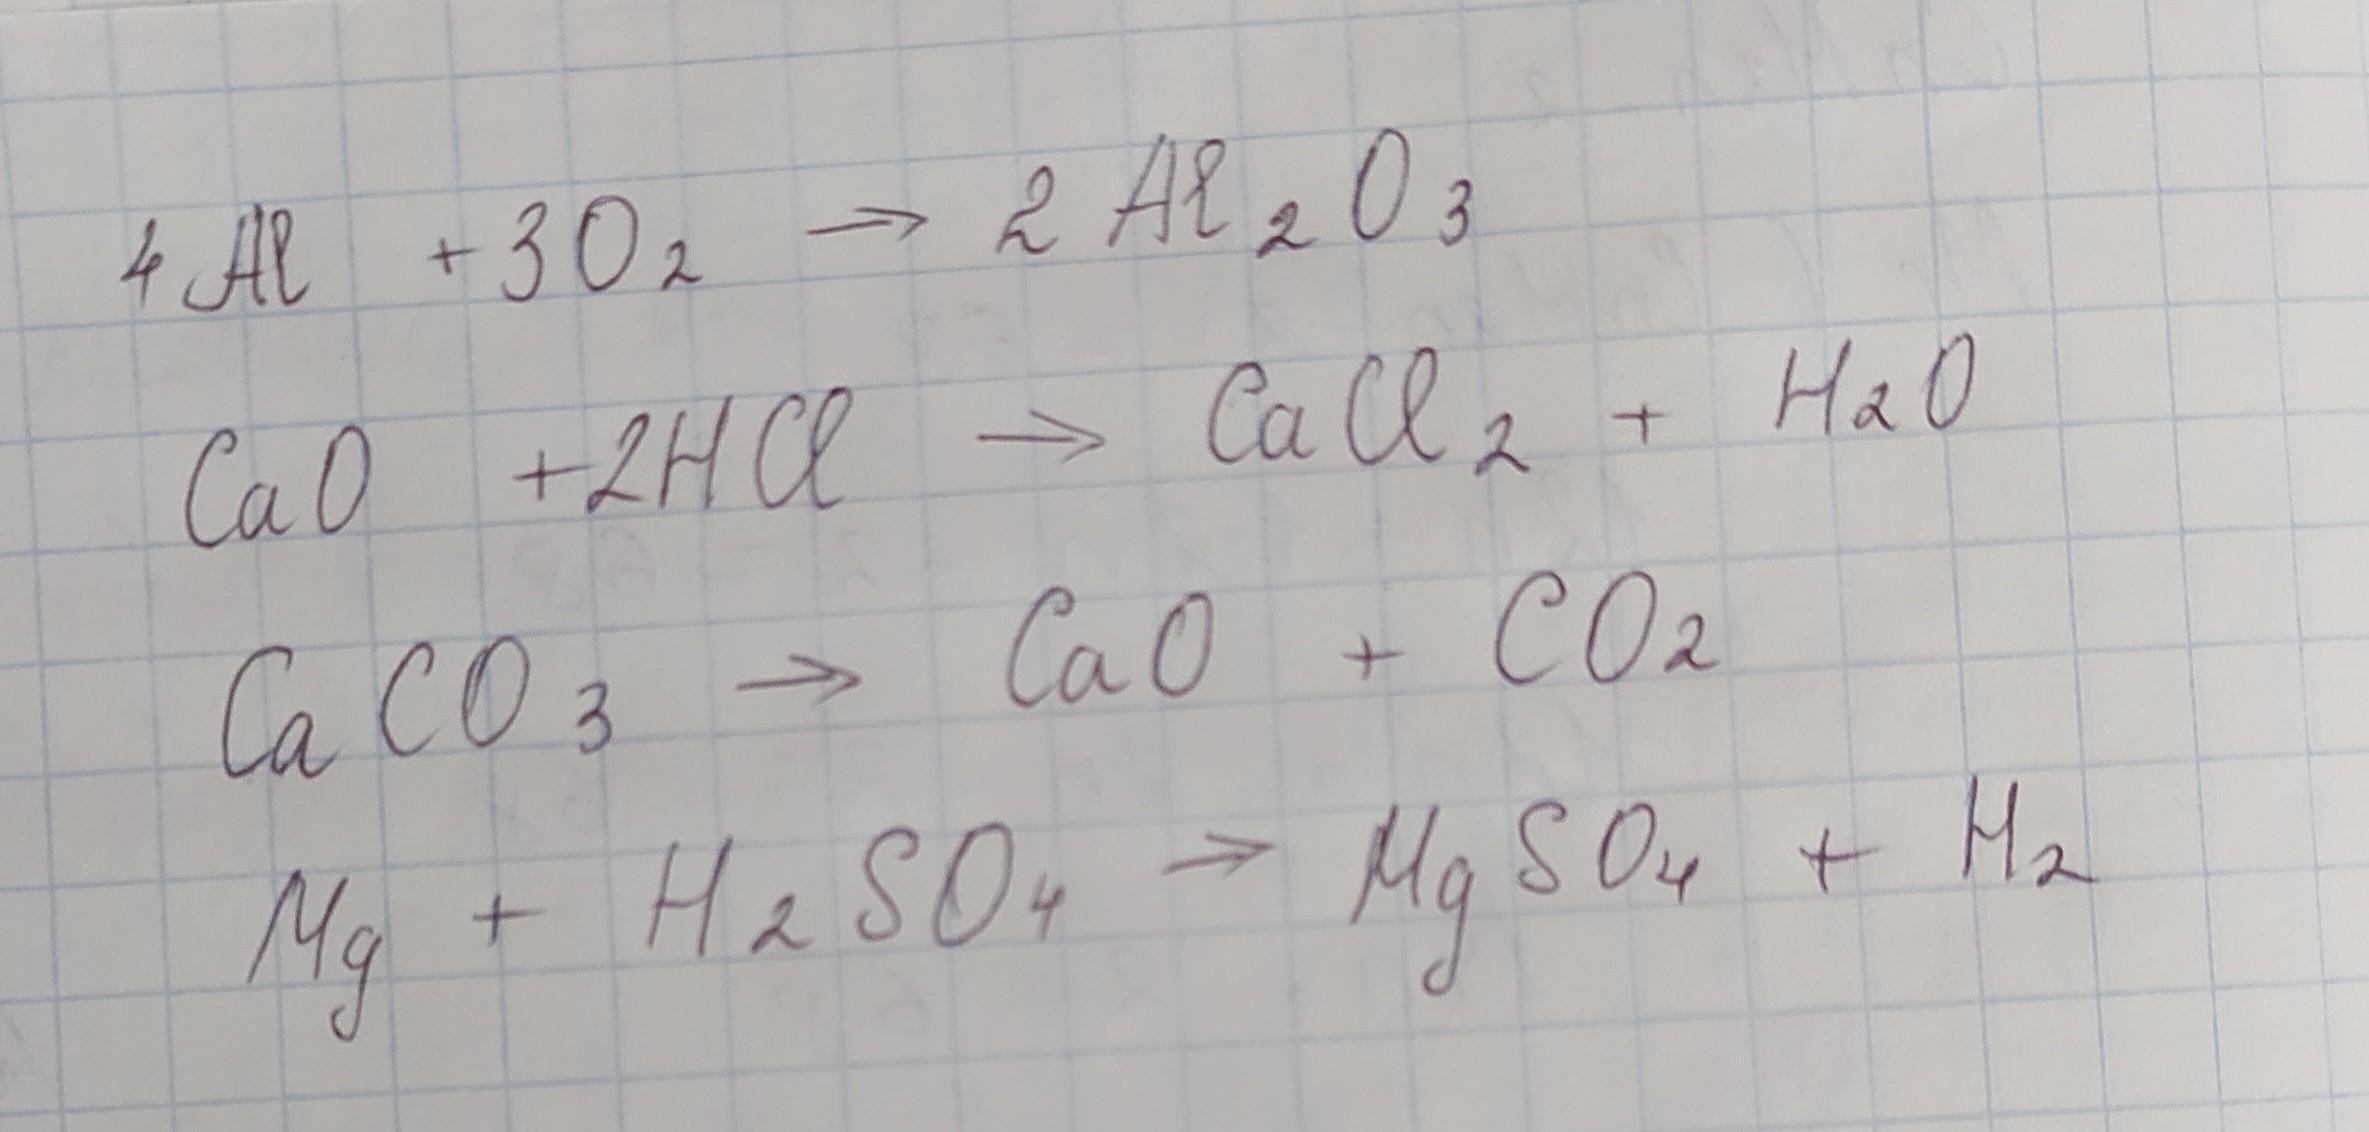 4Al + 3O₂ → 2Al₂O₃
CaO + 2HCl → CaCl₂ + H₂O
CaCO₃ → CaO + CO₂
Mg + H₂SO₄ → MgSO₄ + H₂